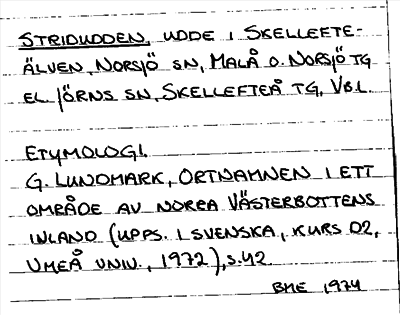 STRIDUDDEN, UDDE I SKELLEFTE-
ÄLVEN, NORSJÖ SN, MALÅ O. NORSJÖ TG
EL JÖRNS SN, SKELLEFTEÅ TG, VBL.
ETYMOLOGI.
G. LUNDMARK, ORTNAMNEN I ETT
OMRÅDE AV NORRA VÄSTERBOTTENS
INLAND (UPPS. I SVENSKA, KURS D2,
UMEÅ UNIV., 1972), S.42
BME 1974